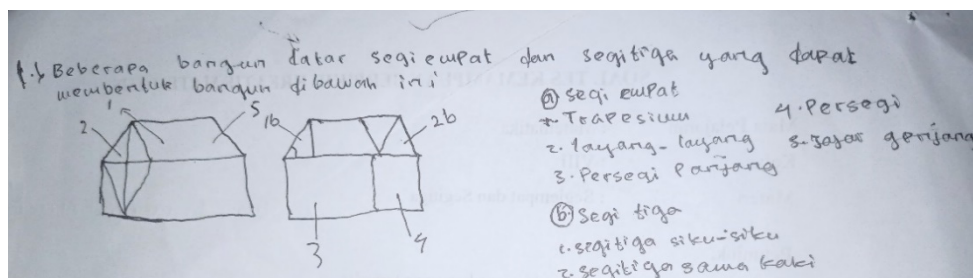 1.) Beberapa bangun datar segi empat dan segitiga yang dapat
membentuk bangun dibawah ini
1
2
5
1b
2b
3
4
(a) segi empat
1. Trapesium
2. layang-layang
3. Persegi Panjang
4. Persegi
5. Jajar genjang
(b) Segi tiga
1. segitiga siku-siku
2. segitiga sama kaki